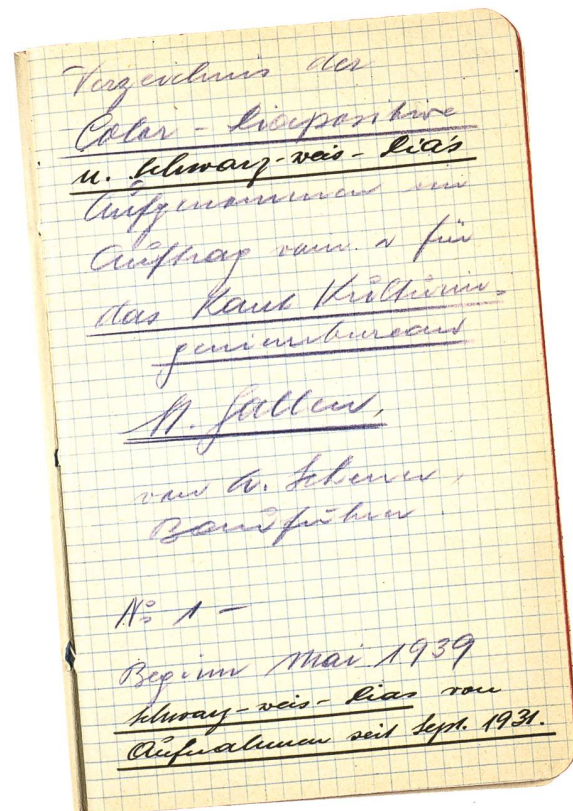 Verzeichnis der
Color - Diapositive
u. schwarz-weis-Dia's
Aufgenommen im
Auftrag vom u für
das Kant Kulturin-
genieurbureau
St. Gallen,
von A. Scherrer,
Bauführer
No 1 -
Beginn Mai 1939
schwarz-weis-Dias von
Aufnahmen seit Sept. 1931.